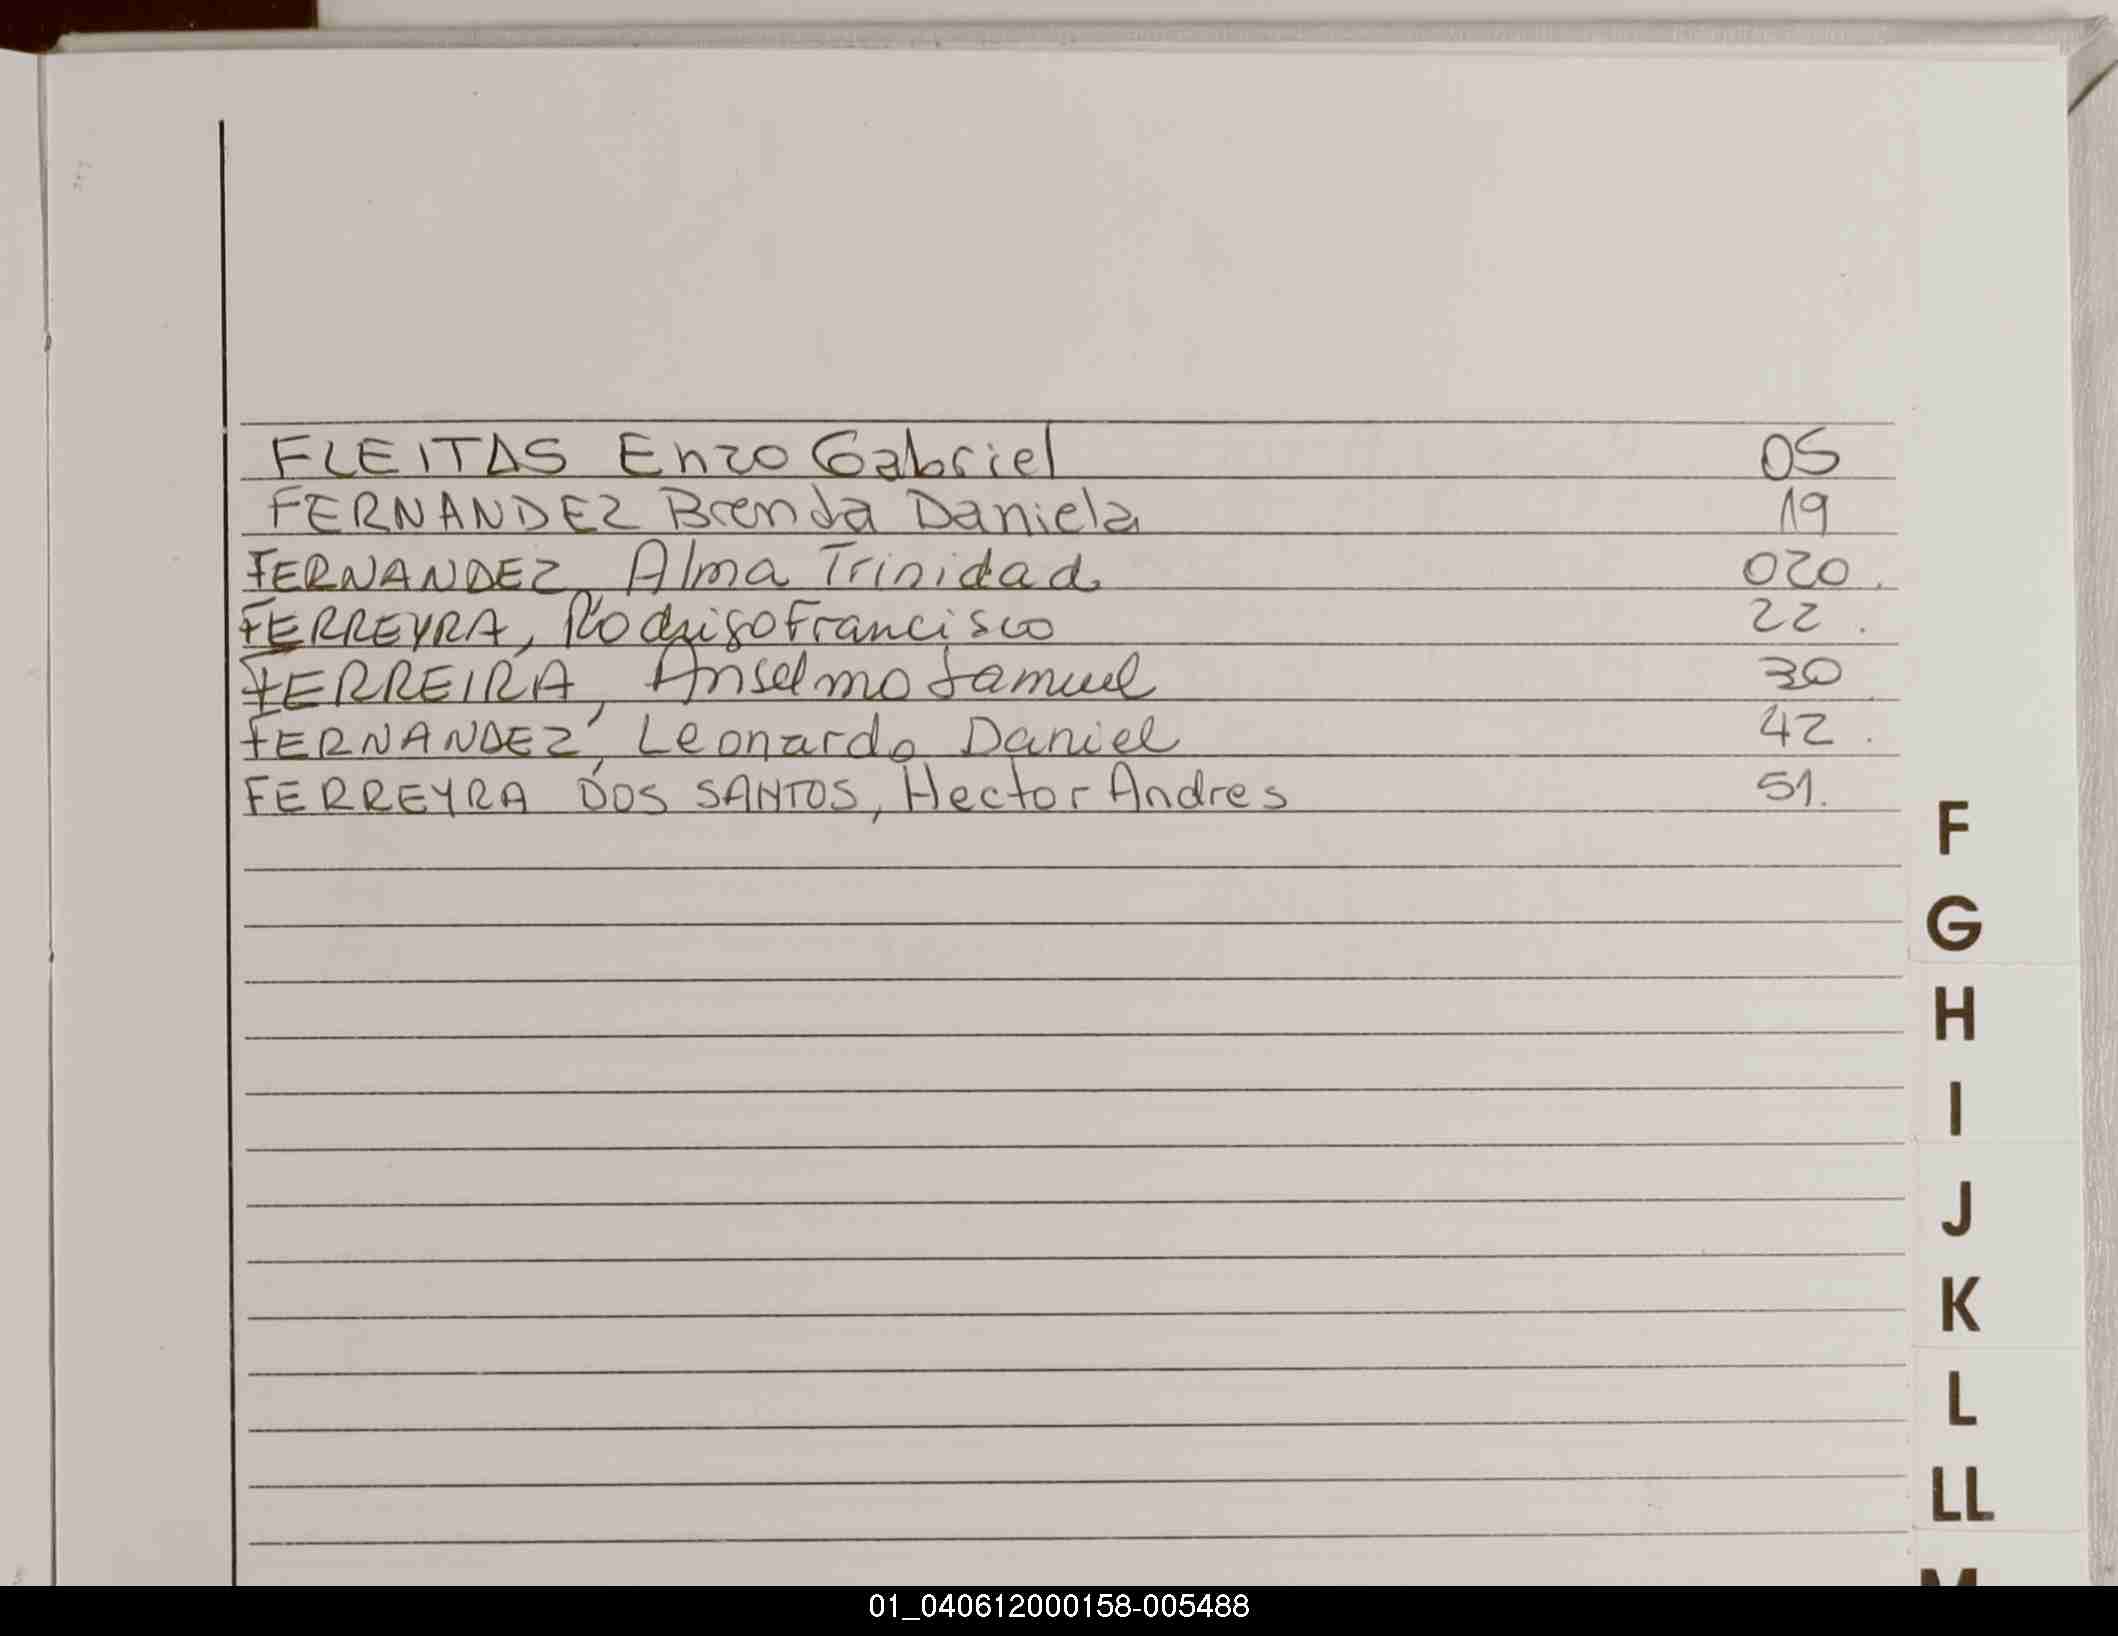 FLEITAS Enzo Gabriel 05
FERNANDEZ Brenda Daniela 19
FERNANDEZ, Alma Trinidad 020.
FERREYRA, Rodrigo Francisco 22.
FERREIRA, Anselmo Samuel 30
FERNANDEZ, Leonardo Daniel 42.
FERREYRA DOS SANTOS, Hector Andres 51.
F
G
H
I
J
K
L
LL
M
01_040612000158-005488